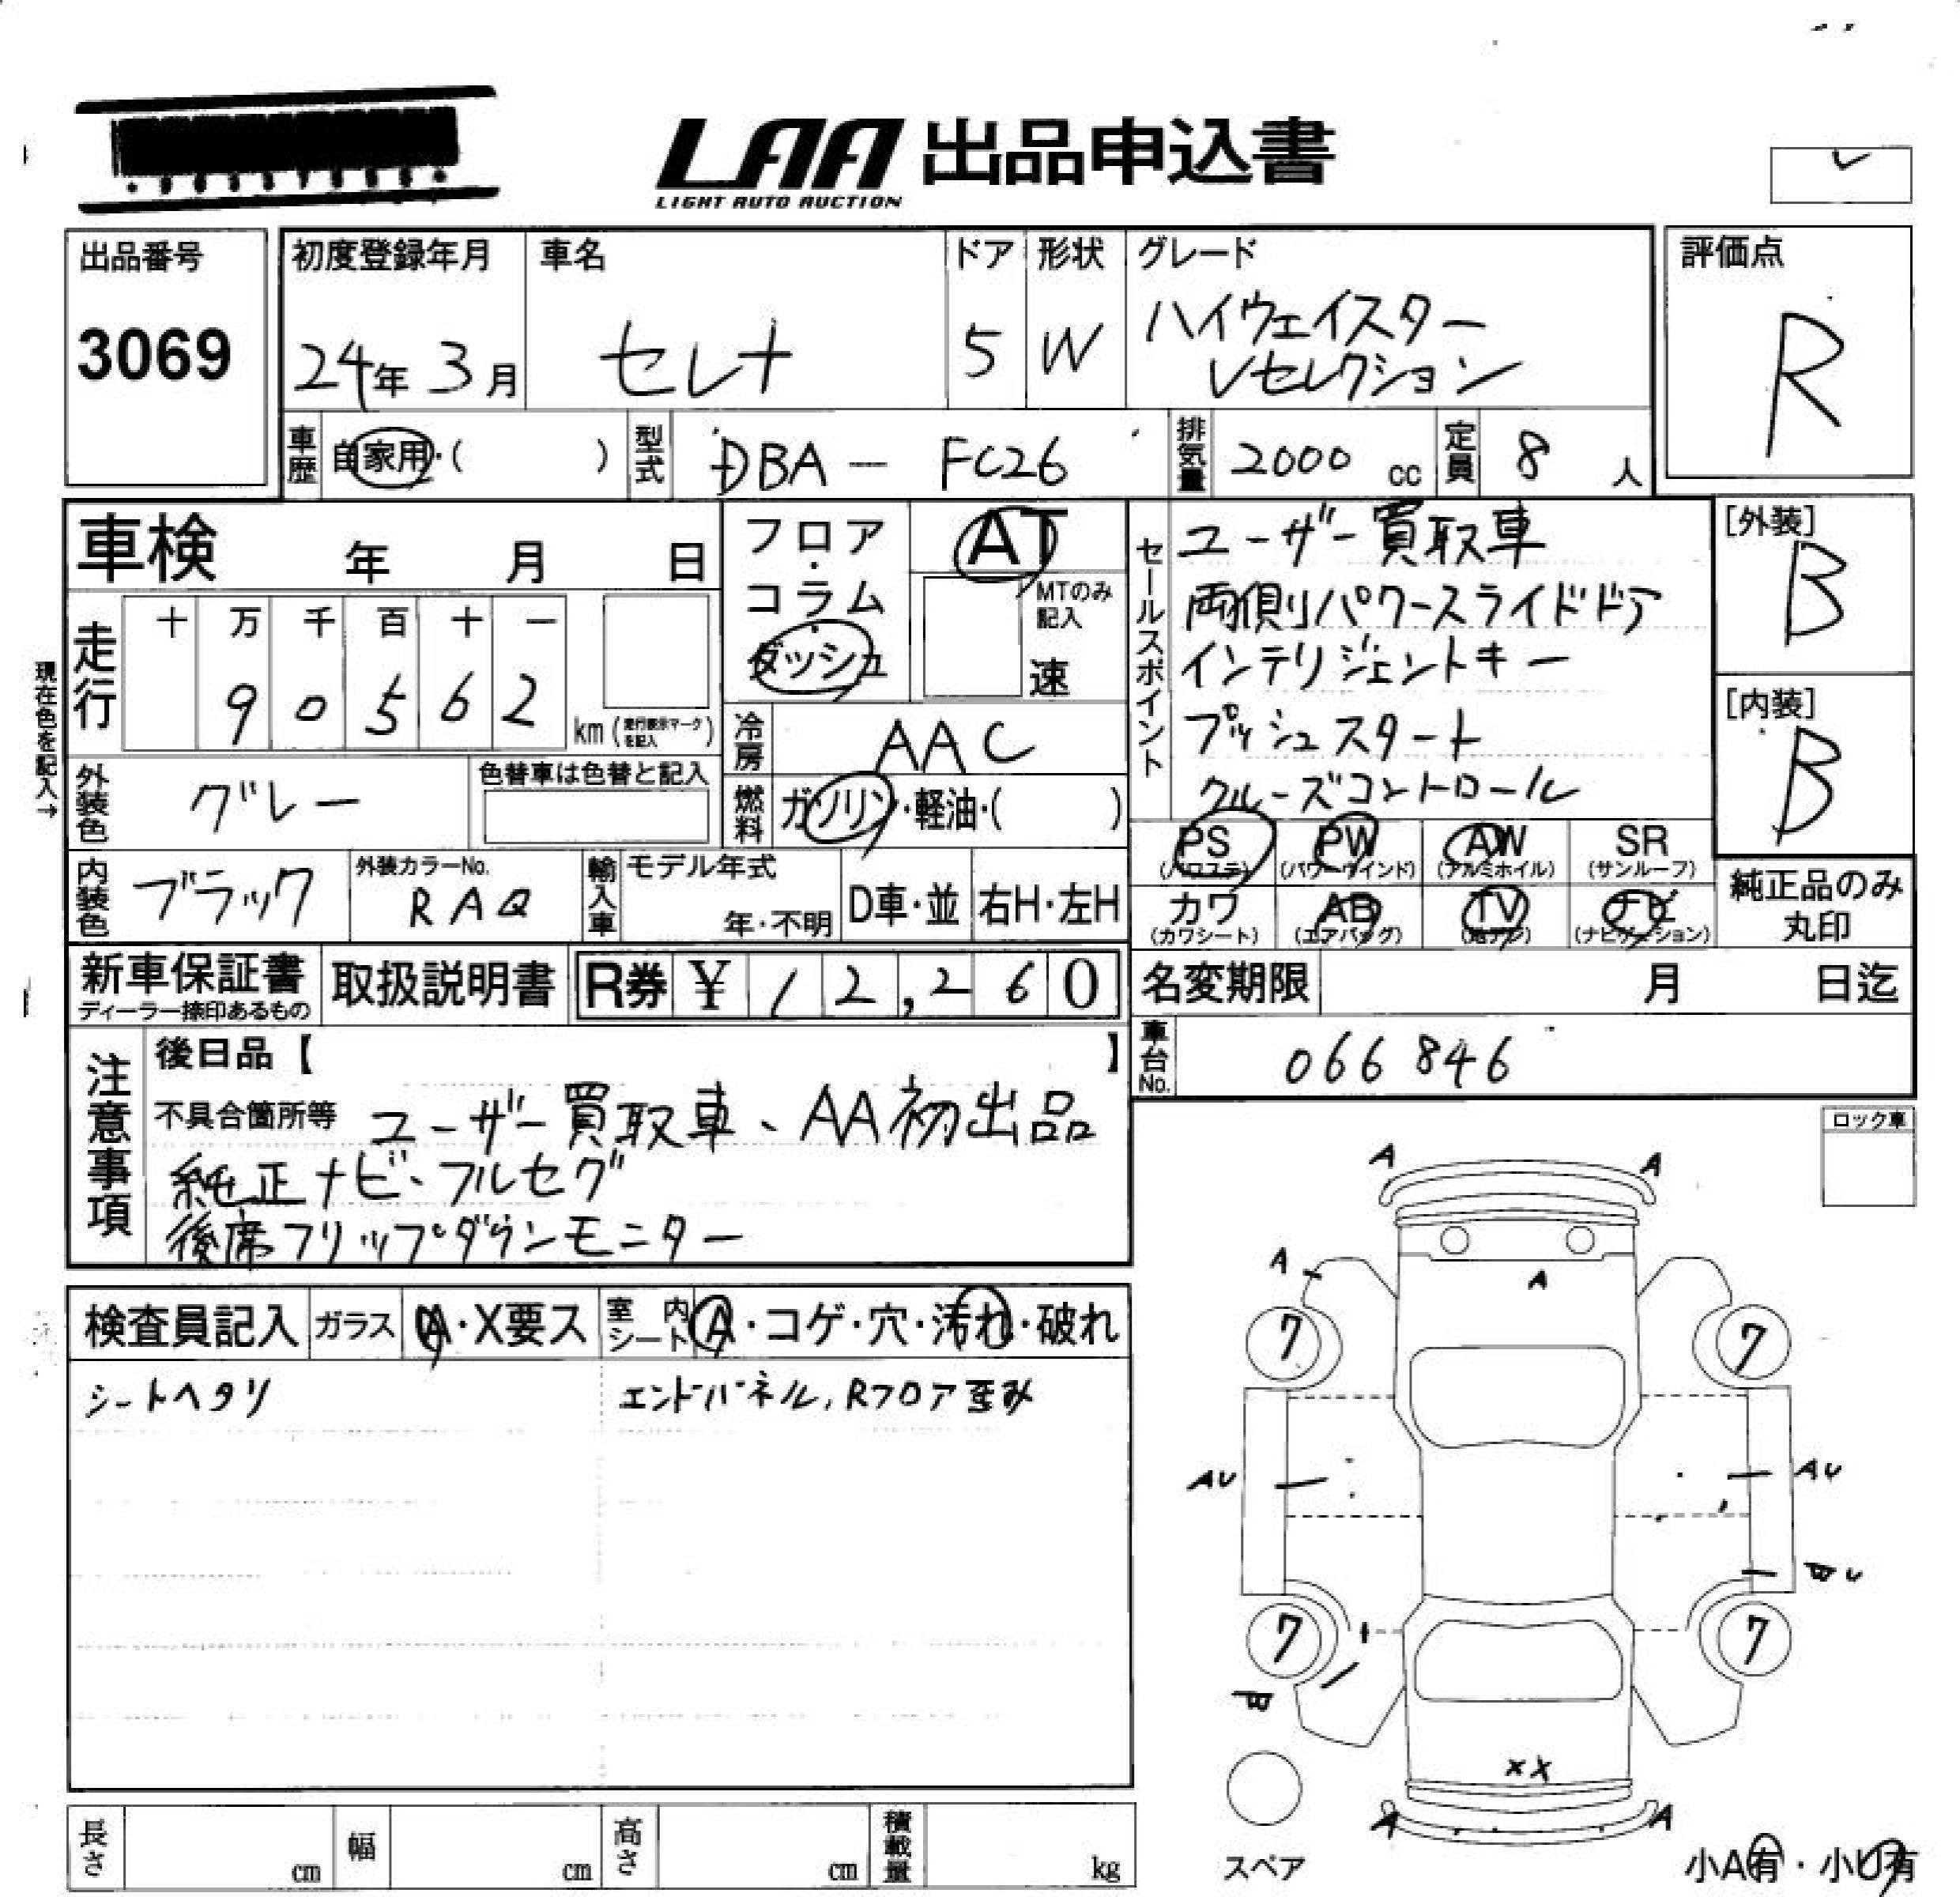 LAA 出品申込書
LIGHT AUTO AUCTION
出品番号
3069
初度登録年月
24年 3月
車名
セレナ
ドア
5
形状
W
グレード
ハイウェイスター
Vセレクション
評価点
R
車歴 自家用・( )
型式 DBA - FC26
排気量 2000 cc
定員 8 人
車検 年 月 日
走行
十 万 千 百 十 一
9 0 5 6 2
km (走行表示マークを記入)
現在色を記入→
フロア・コラム・ダッシュ
AT
MTのみ記入
速
冷房 AAC
燃料 ガソリン・軽油・( )
セールスポイント
ユーザー買取車
両側パワースライドドア
インテリジェントキー
プッシュスタート
クルーズコントロール
[外装]
B
[内装]
B
外装色 グレー
色替車は色替と記入
内装色 ブラック
外装カラーNo.
RAQ
輸入車
モデル年式
年・不明
D車・並
右H・左H
PS (パワステ)
PW (パワーウインド)
AW (アルミホイル)
SR (サンルーフ)
カワ (カワシート)
AB (エアバッグ)
TV (地デジ)
ナビ (ナビゲーション)
純正品のみ
丸印
新車保証書
ディーラー捺印あるもの
取扱説明書
R券 ¥ 12,260
名変期限 月 日迄
車台No. 066846
注意事項
後日品【 】
不具合箇所等 ユーザー買取車、AA初出品
純正ナビ・フルセグ
後席フリップダウンモニター
ロック車
検査員記入
ガラス A・X要ス
室内シート A・コゲ・穴・汚れ・破れ
シートヘタリ
エンドパネル,Rフロア歪み
A A
A A
7 7
AU AU
BU
7 7
B
XX
A A
スペア
小A有・小U有
長さ cm
幅 cm
高さ cm
積載量 kg